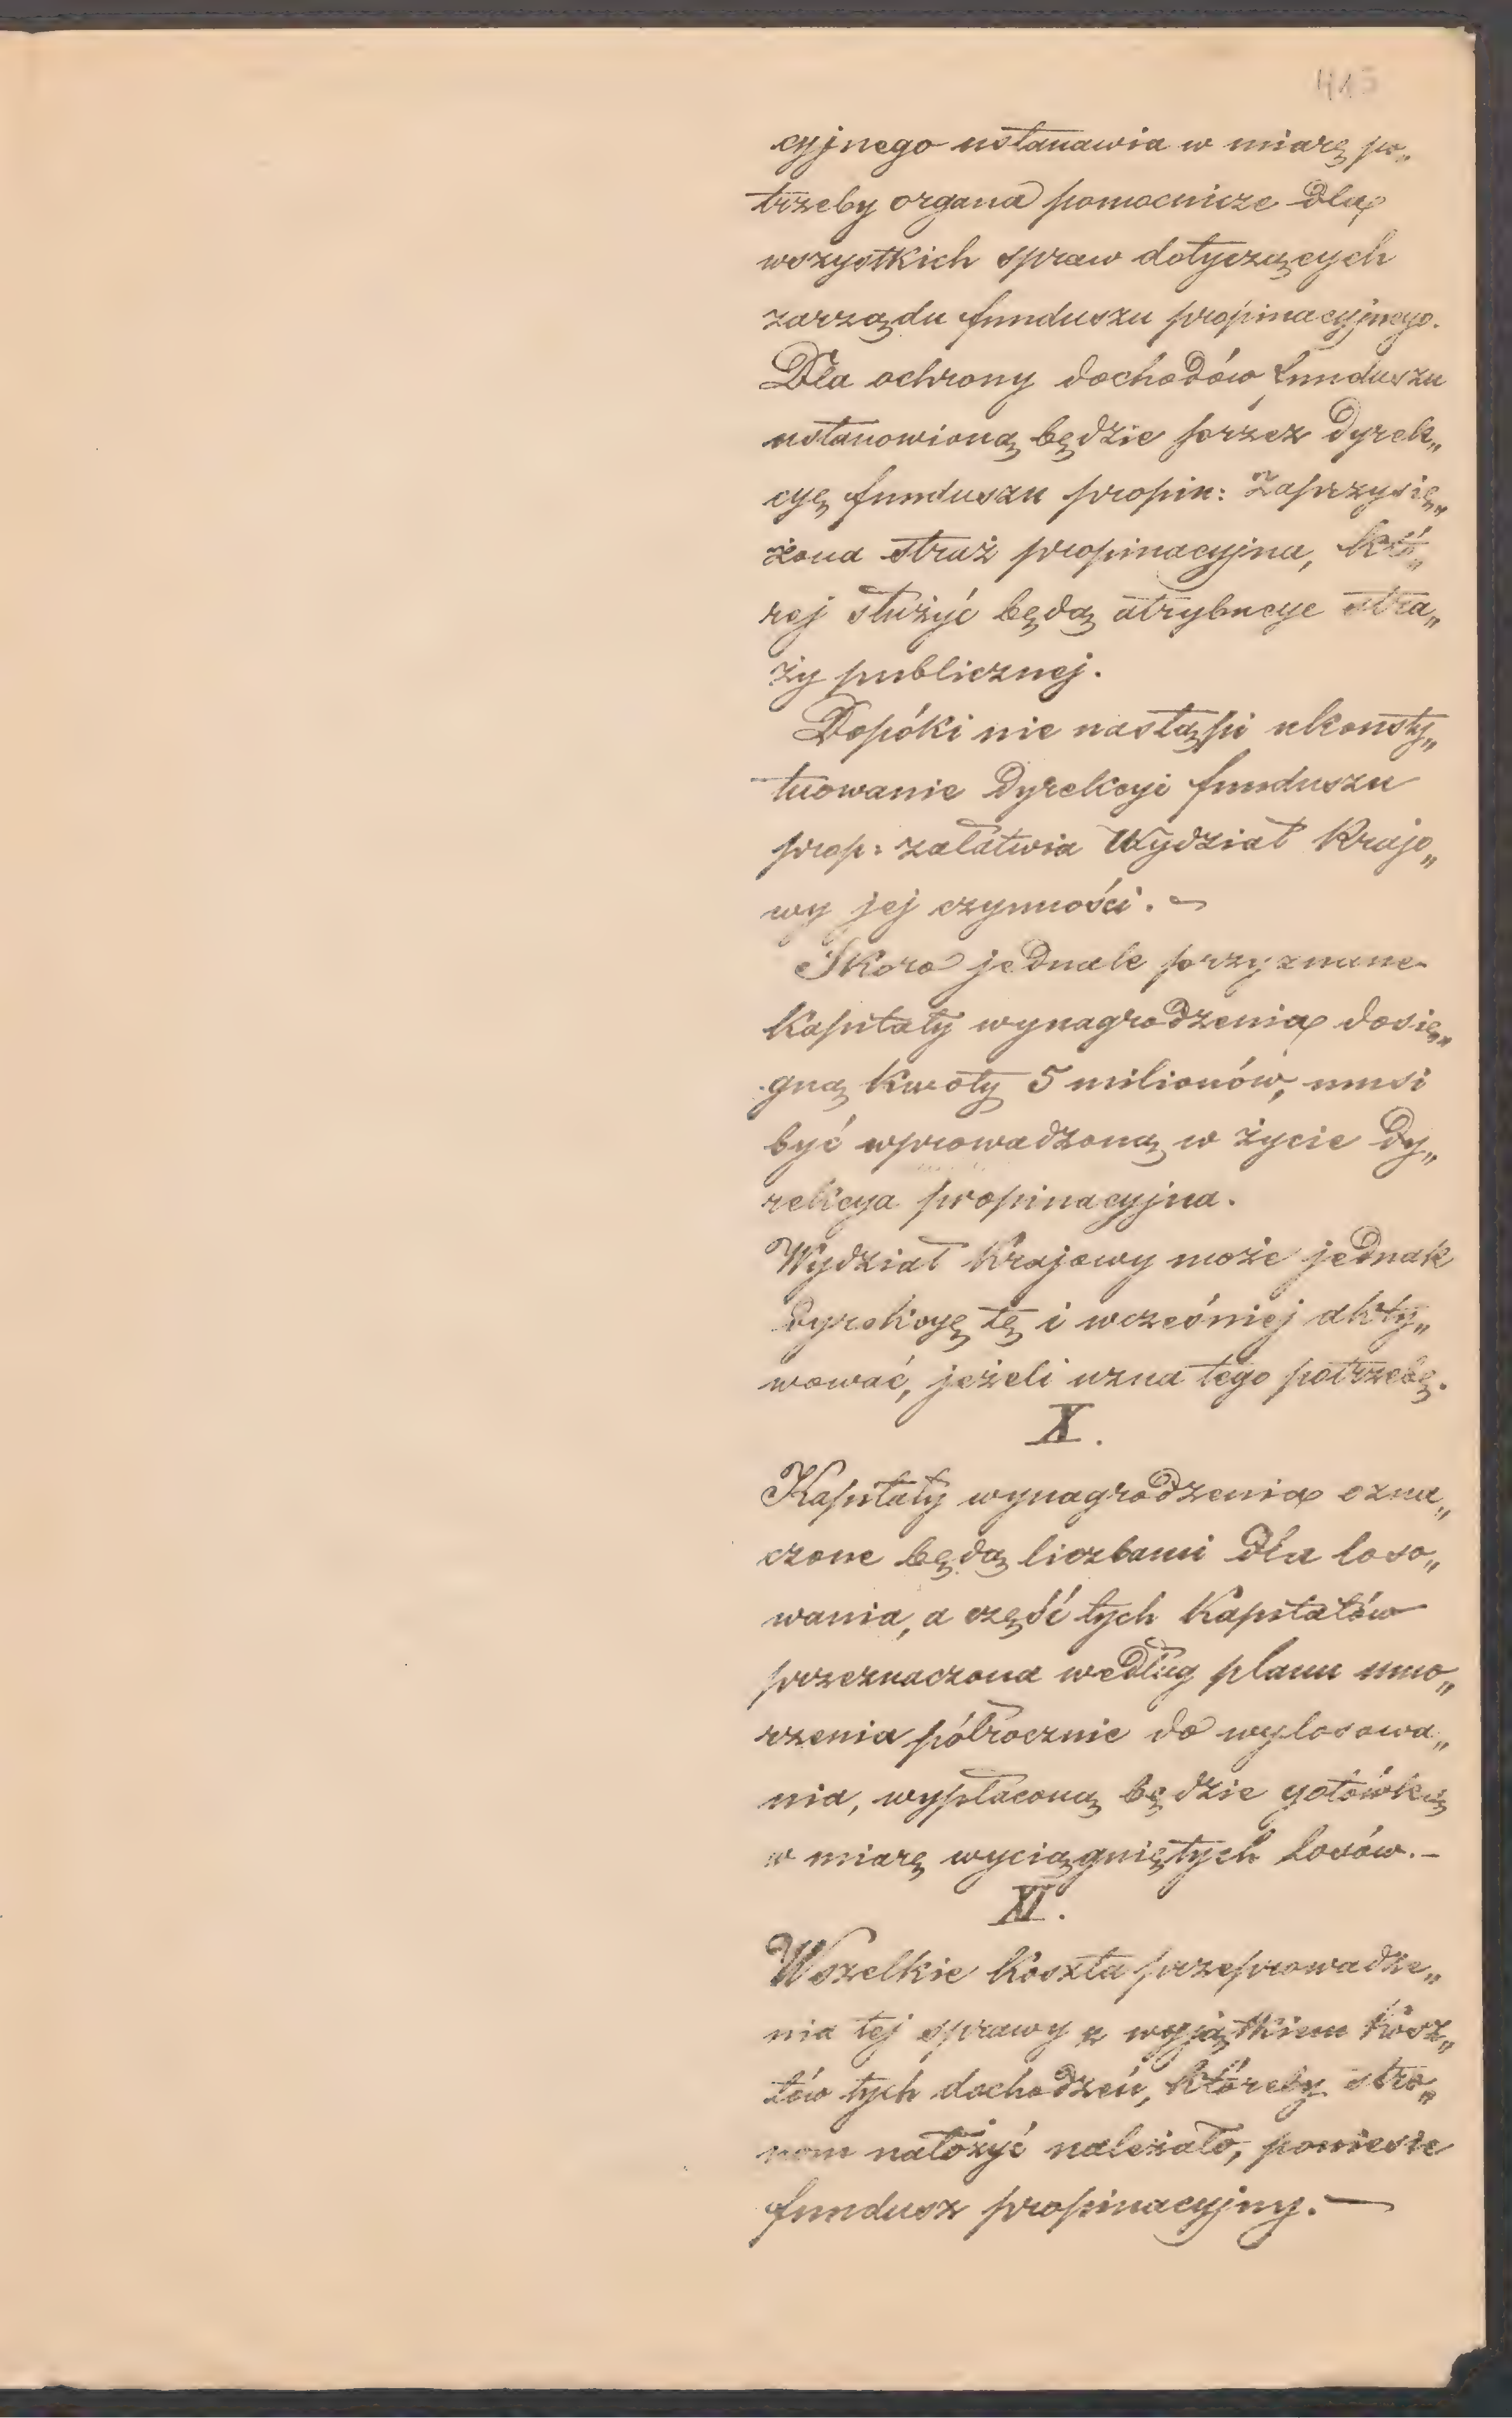 415
cyjnego ustanawia w miarę po„
trzeby organa pomocnicze dla
wszystkich spraw dotyczących
zarządu funduszu propinacyjnego.
Dla ochrony dochodów funduszu
ustanowioną będzie przez Dyrek„
cyę funduszu propin: zaprzysię„
żona straż propinacyjna, któ„
rej służyć będą atrybucye stra„
ży publicznej.
Dopóki nie nastąpi ukonsty„
tuowanie Dyrekcyi funduszu
prop: załatwia Wydział Krajo„
wy jej czynności. –
Skoro jednak przyznane
Kapitały wynagrodzenia dosię„
gną kwoty 5 milionów, musi
być wprowadzoną w życie Dy„
rekcya propinacyjna.
Wydział Krajowy może jednak
Dyrekcyę tę i wcześniej akty„
wować, jeżeli uzna tego potrzebę.
X.
Kapitały wynagrodzenia ozna„
czone będą liczbami dla loso„
wania, a część tych Kapitałów
przeznaczona według planu umo„
rzenia półrocznie do wylosowa„
nia, wypłaconą będzie gotówką
w miarę wyciągniętych losów. –
XI.
Wszelkie koszta przeprowadze„
nia tej sprawy z wyjątkiem kosz„
tów tych dochodzeń, któreby stro„
nom nałożyć należało, poniesie
fundusz propinacyjny. —